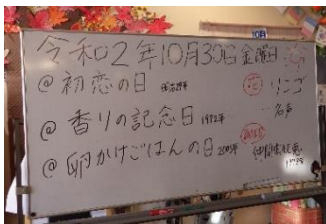 10月
令和2年10月30日 金曜日
@ 初恋の日
花 リンゴ
…名声
@ 香りの記念日 1992年
@ 卵かけごはんの日 2005年